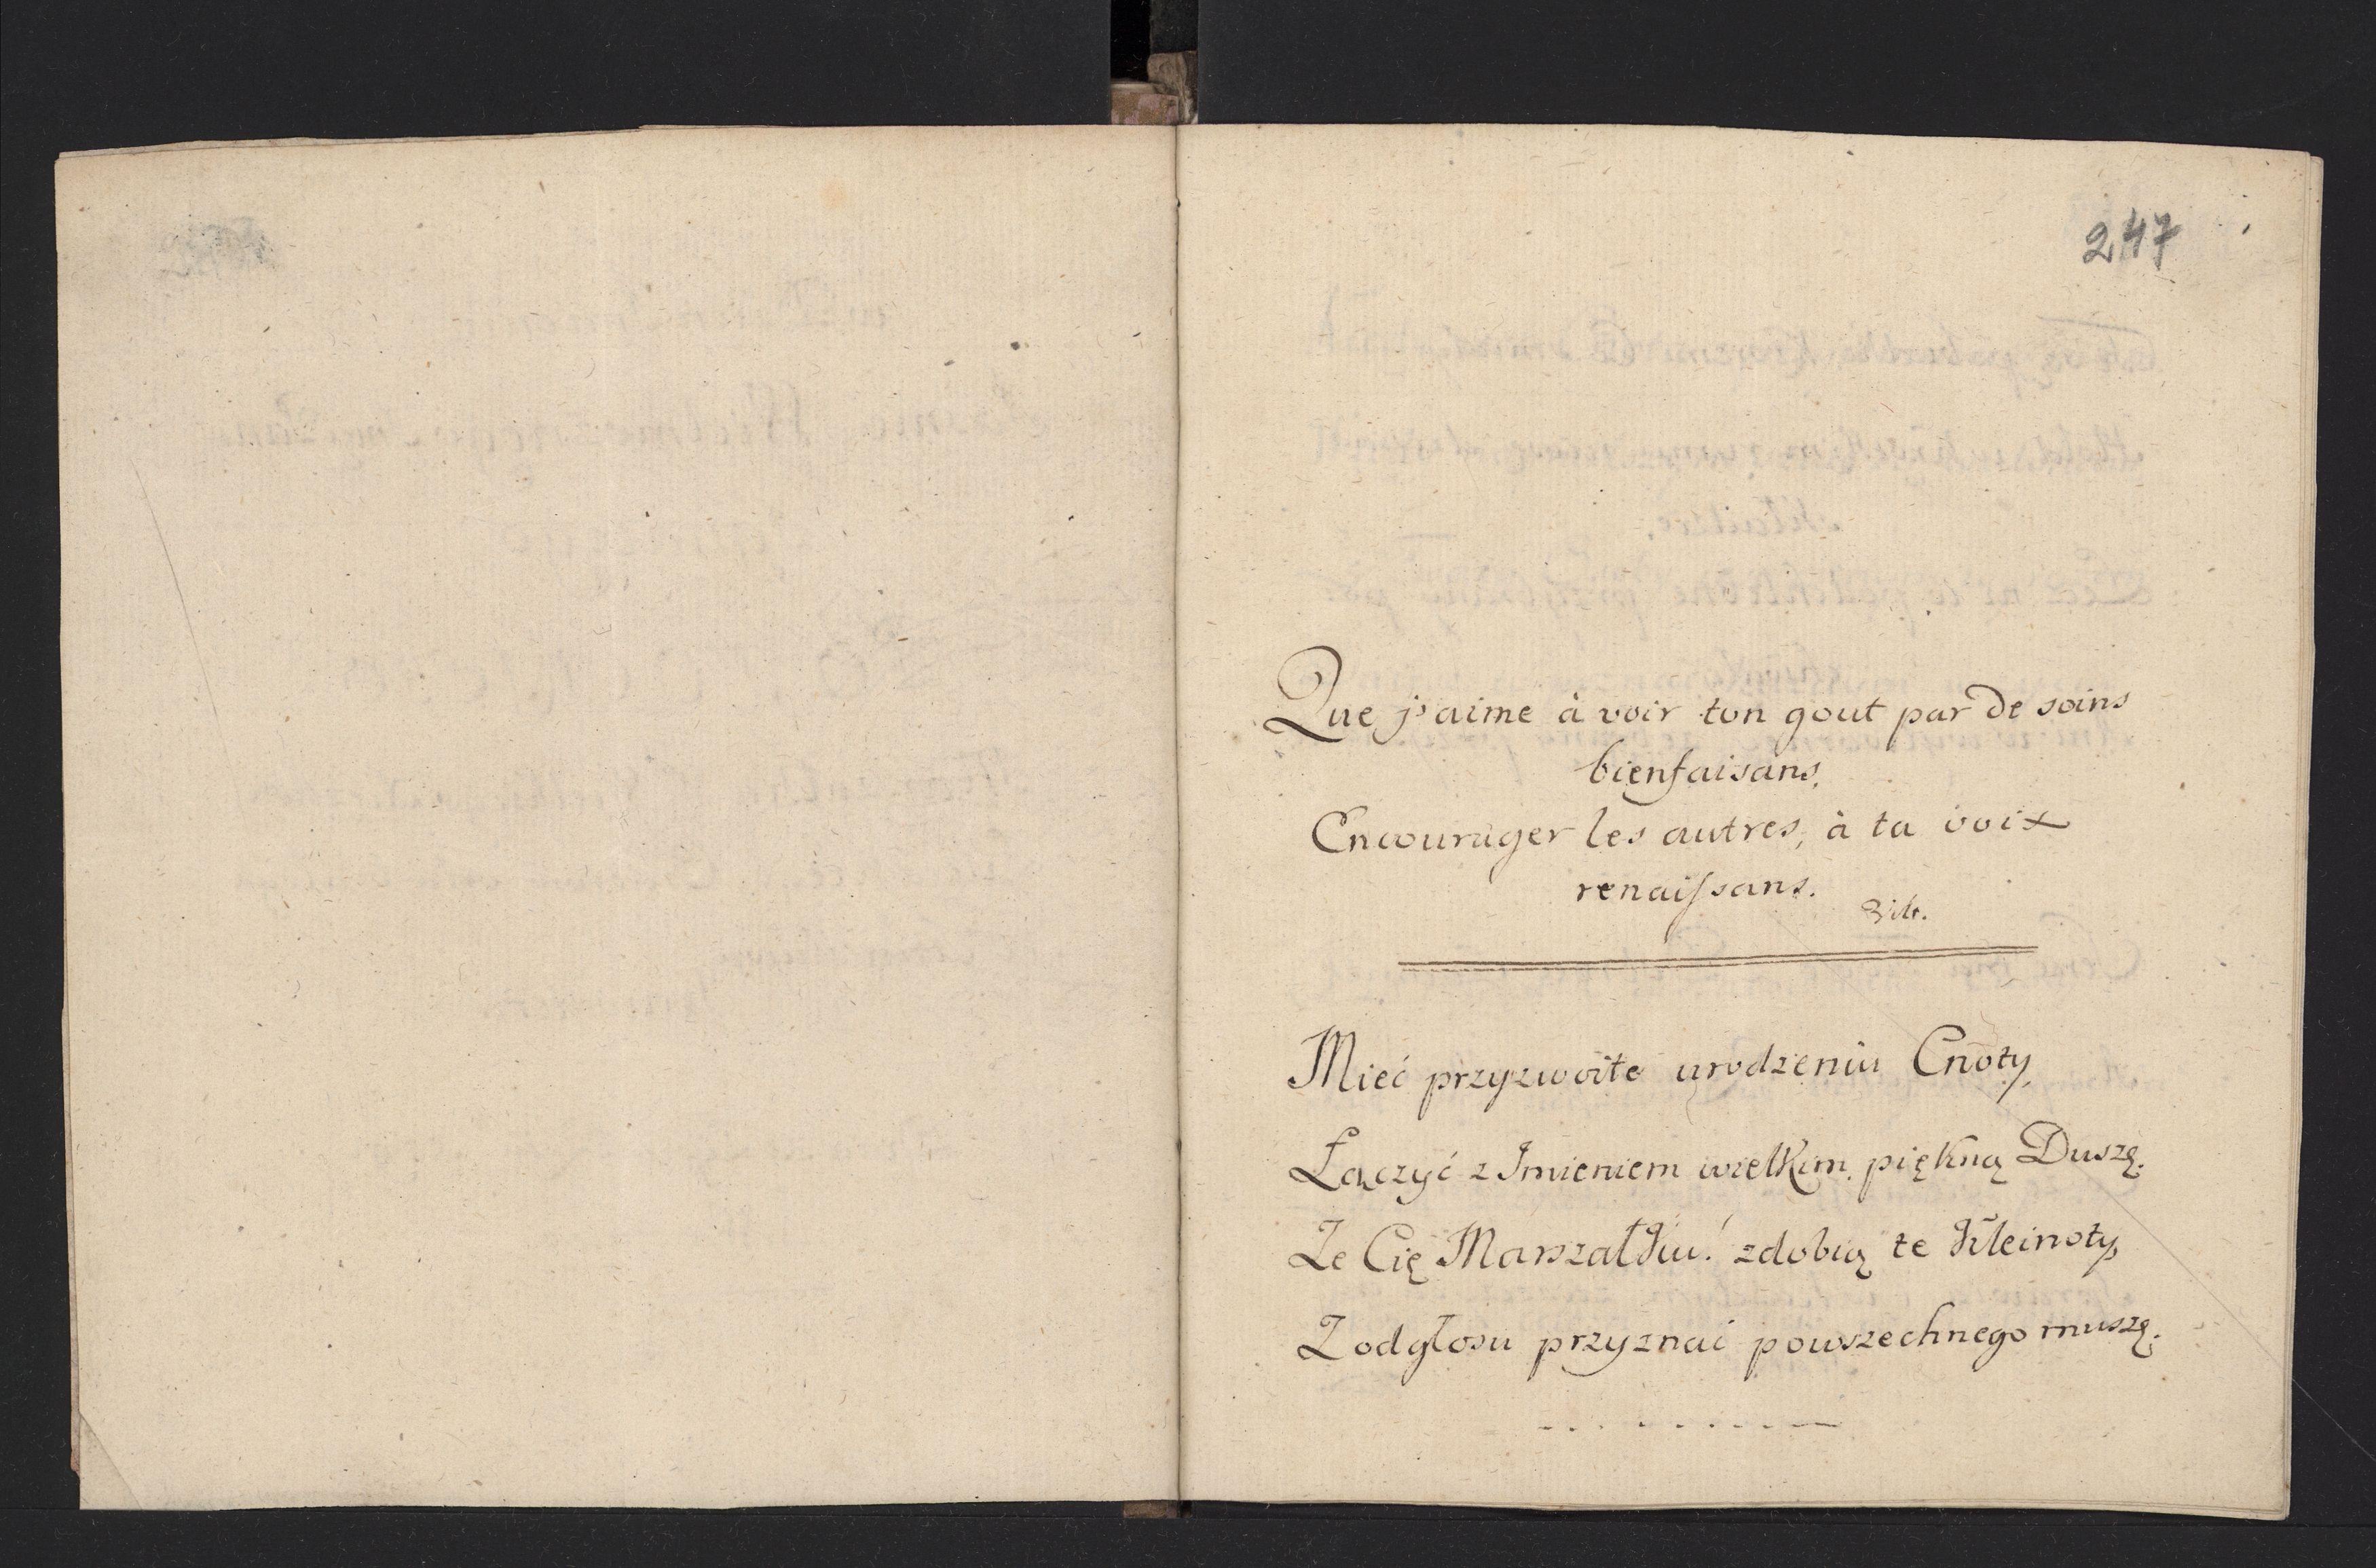 247
Que j'aime à voir ton gout par de soins
bienfaisans,
Encourager les autres, à ta voix
renaissans.
Mieć przyzwoite urodzeniu Cnoty,
Łączyć z Imieniem wielkim, piękną Duszę.
Że Cię Marszałku! zdobią te Kleinoty,
Z odgłosu przyznać powszechnego muszę.